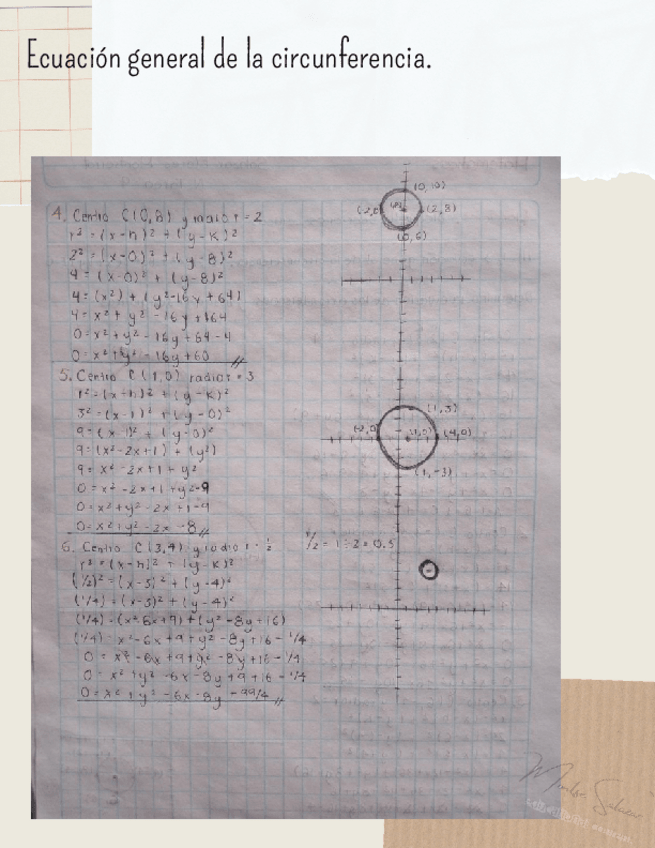 Ecuación general de la circunferencia.
4. Centro C(0,8) y radio r = 2
r² = (x-h)² + (y-k)²
2² = (x-0)² + (y-8)²
4 = (x-0)² + (y-8)²
4 = (x²) + (y²-16y+64)
4 = x² + y² - 16y + 64
0 = x² + y² - 16y + 64 - 4
0 = x² + y² - 16y + 60
(0,10)
(2,8)
(0,6)
5. Centro C(1,0) radio r = 3
r² = (x-h)² + (y-k)²
3² = (x-1)² + (y-0)²
9 = (x-1)² + (y-0)²
9 = (x²-2x+1) + (y²)
9 = x² - 2x + 1 + y²
0 = x² - 2x + 1 + y² - 9
0 = x² + y² - 2x + 1 - 9
0 = x² + y² - 2x - 8
(1,3)
(1,0)
(4,0)
(1,-3)
6. Centro C(3,4) y radio r = ½
r² = (x-h)² + (y-k)²
(½)² = (x-3)² + (y-4)²
(1/4) = (x-3)² + (y-4)²
(1/4) = (x²-6x+9) + (y²-8y+16)
(1/4) = x² - 6x + 9 + y² - 8y + 16 - 1/4
0 = x² - 6x + 9 + y² - 8y + 16 - 1/4
0 = x² + y² - 6x - 8y + 9 + 16 - 1/4
0 = x² + y² - 6x - 8y - 99/4
1/2 = 1÷2 = 0.5